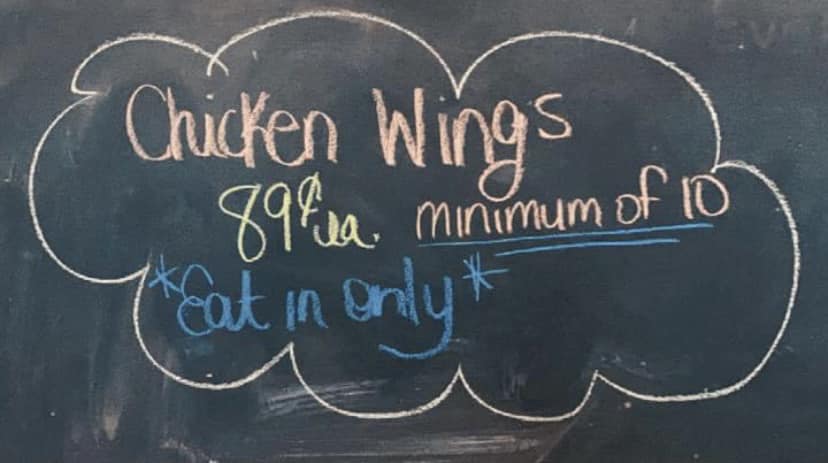 Chicken Wings
89¢ ea. minimum of 10
*Eat in only*